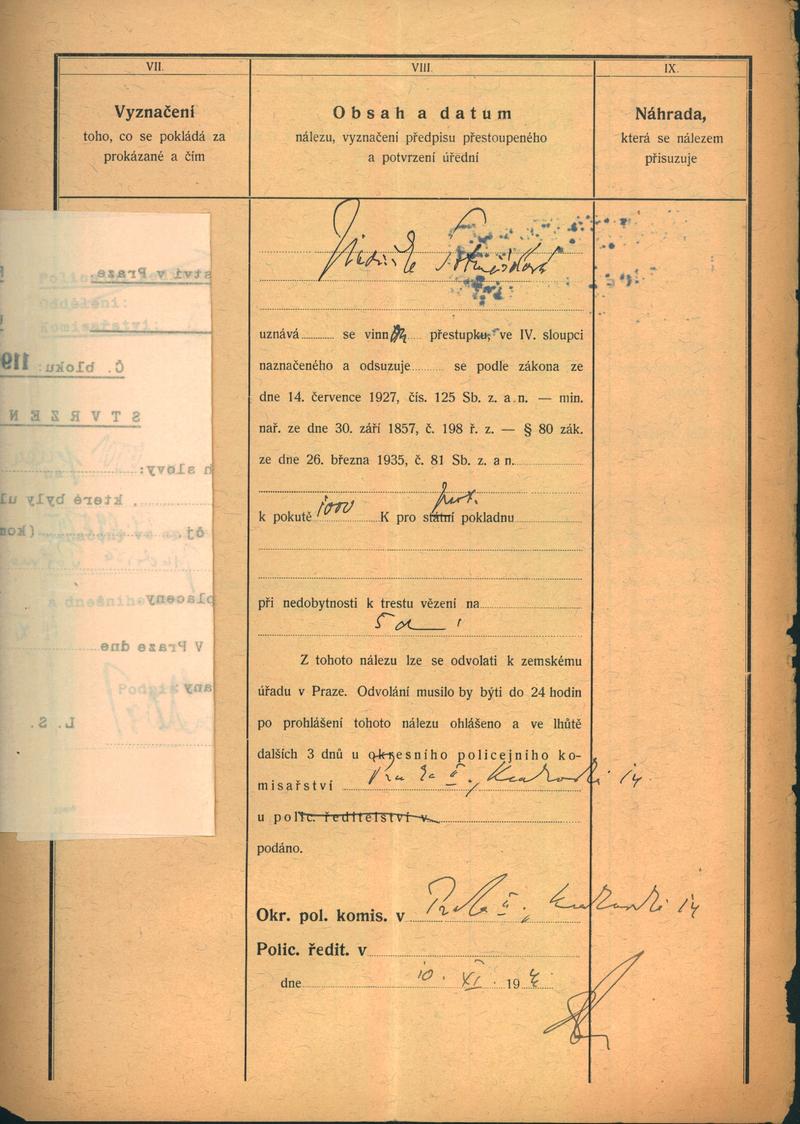 VII.
VIII.
IX.
Vyznačení
toho, co se pokládá za
prokázané a čím
Obsah a datum
nálezu, vyznačení předpisu přestoupeného
a potvrzení úřední
Náhrada,
která se nálezem
přisuzuje
uznává se vinn přestupku, ve IV. sloupci
naznačeného a odsuzuje se podle zákona ze
dne 14. července 1927, čís. 125 Sb. z. a n. — min.
nař. ze dne 30. září 1857, č. 198 ř. z. — § 80 zák.
ze dne 26. března 1935, č. 81 Sb. z. a n.
k pokutě 1000 K pro prot. státní pokladnu
při nedobytnosti k trestu vězení na
5
Z tohoto nálezu lze se odvolati k zemskému
úřadu v Praze. Odvolání musilo by býti do 24 hodin
po prohlášení tohoto nálezu ohlášeno a ve lhůtě
dalších 3 dnů u okresního policejního ko-
misařství Praha II., Krakovská 14
u polic. ředitelství v
podáno.
Okr. pol. komis. v Praha II., Krakovská 14
Polic. ředit. v
dne 10. XI. 194
Policejní
ství v Praze
Oddělení:
Komisařství:
Č. bloku: 119
STVRZEN
h slovy:
, které byly ul
čj. (kon
placeny
a dnešního
V Praze dne
Podpis
any
L. S.